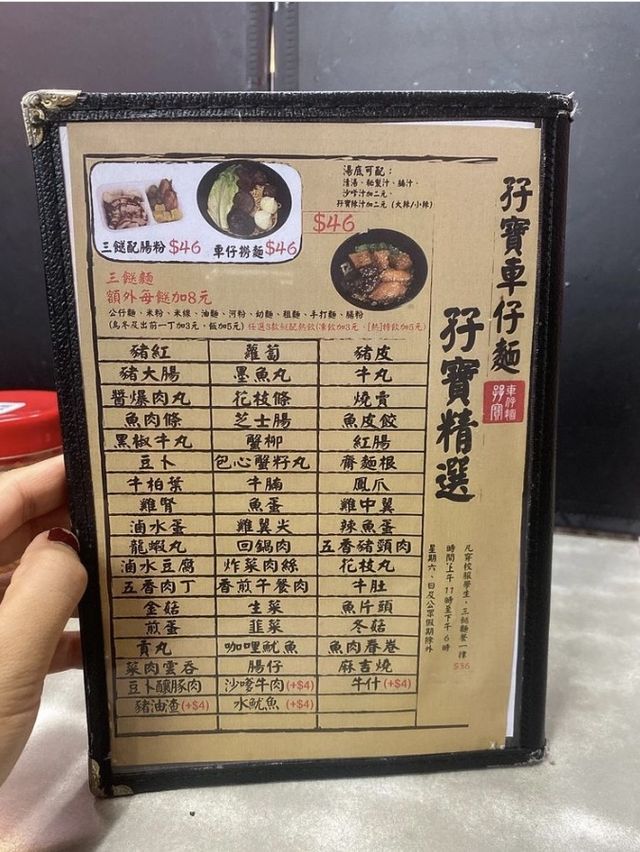 孖寶車仔麵
孖寶精選
車仔麵
孖寶
湯底可配：
清湯、秘製汁、腩汁、
沙嗲汁加二元、
孖寶辣汁加二元 (大辣/小辣)
$46
三餸配腸粉 $46
車仔撈麵 $46
三餸麵
額外每餸加8元
公仔麵、米粉、米線、油麵、河粉、幼麵、粗麵、手打麵、腸粉
(烏冬及出前一丁加3元，飯加5元) 任選3款餸配熱飲(凍飲加3元，[熱]特飲加5元)
豬紅 蘿蔔 豬皮
豬大腸 墨魚丸 牛丸
醬爆肉丸 花枝條 燒賣
魚肉條 芝士腸 魚皮餃
黑椒牛丸 蟹柳 紅腸
豆卜 包心蟹籽丸 齋麵根
牛柏葉 牛腩 鳳爪
雞腎 魚蛋 雞中翼
滷水蛋 雞翼尖 辣魚蛋
龍蝦丸 回鍋肉 五香豬頸肉
滷水豆腐 炸菜肉絲 花枝丸
五香肉丁 香煎午餐肉 牛肚
金菇 生菜 魚片頭
煎蛋 韭菜 冬菇
貢丸 咖哩魷魚 魚肉春卷
菜肉雲吞 腸仔 麻吉燒
豆卜釀豚肉 沙嗲牛肉 (+$4) 牛什 (+$4)
豬油渣 (+$4) 水魷魚 (+$4)
凡穿校服學生，三餸麵餐一律 $36
時間：上午 11 時至下午 6 時
星期六、日及公眾假期除外